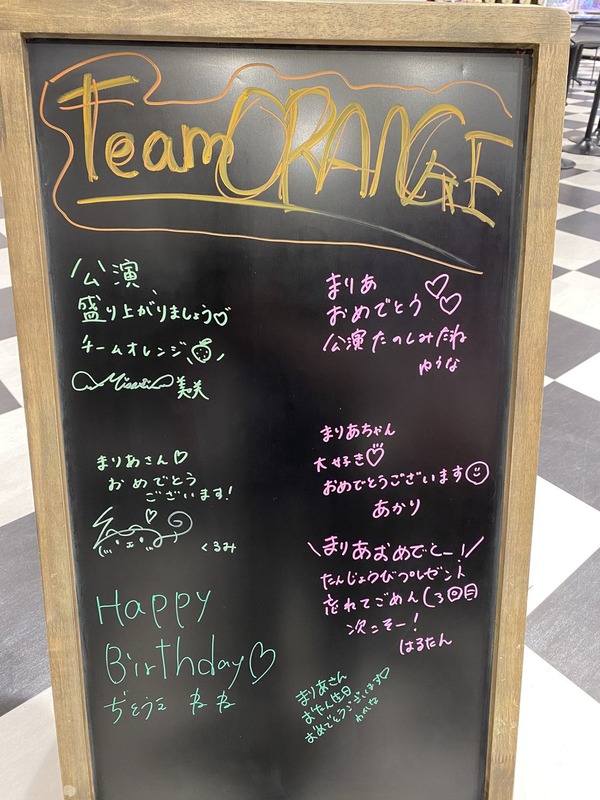 Team ORANGE
公演、
盛り上がりましょう♡
チームオレンジ
美咲
まりあさん♡
おめでとう
ございます!
くるみ
Happy
Birthday♡
まりあ
おめでとう
公演たのしみだね
ゆうな
まりあちゃん
大好き♡
おめでとうございます
あかり
\まりあおめでとー!/
たんじょうびプレゼント
忘れてごめん(3回目
次こそー!
はるたん
まりあさん
お誕生日
おめでとうございます♡